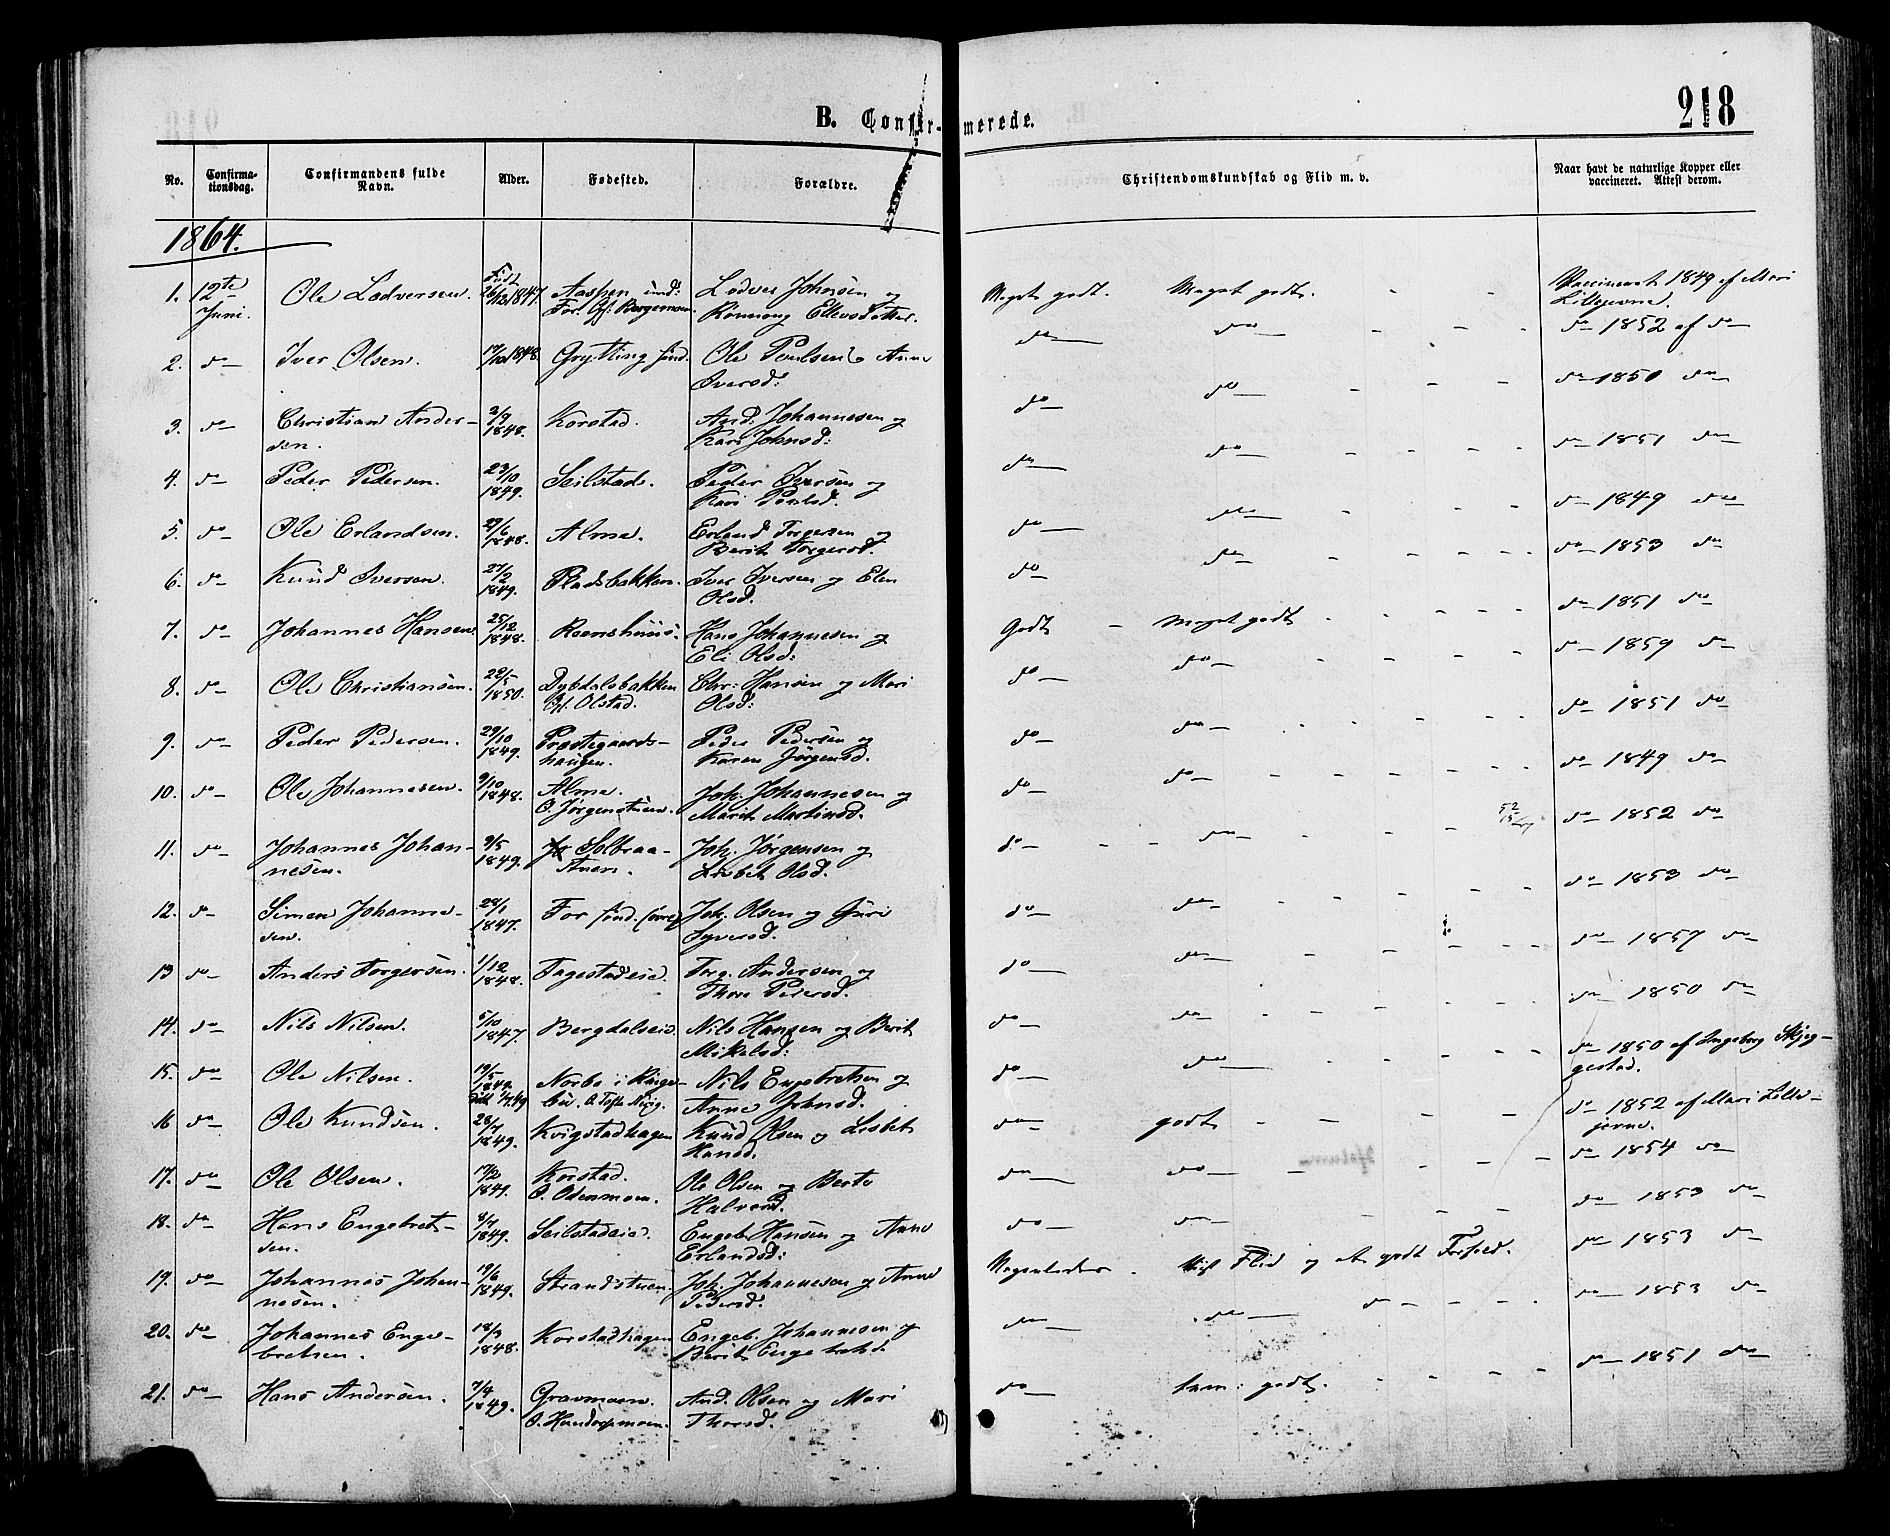 B. Confir-merede.
218
No.
Confirma-
tionsdag.
Confirmandens fulde
Navn.
Alder.
Fødested.
Forældre.
Christendomskundskab og Flid m. v.
Naar havt de naturlige Kopper eller
vaccineret. Attest derom.
1864.
1. 12te Ole Lodversen. Født 26/12 1847. Aaspen Lodver Johnsen og Meget godt. Meget godt. - - Vaccineret 1849 af Mari
Juni. For. Ronnoug Ellevsdatter. Lillejevne.
2. do Iver Olsen. 17/10 1848. Grytting Ole Poulsen og Anne do do - - - do 1852 af do
Iversd:
3. do Christian Ander- 2/9 Korstad. And: Johannesen og do do - - - do 1850 do
sen. 1848. Kari Johnsd:
4. do Peder Pedersen. 23/10 Seilstad. Peder Iversen og do do - - - do 1851 do
1849. Kari
5. do Ole Erlandsen. 29/6 Alme. Erland Torgersen og do do - - - do 1849 do
1848. Berit Torgersd.
6. do Knud Iversen. 27/2 Pladsbakken. Iver Iversen og Elen do do - - - do 1853 do
1849. Olsd.
7. do Johannes Hansen. 25/12 Roenshuus. Hans Johannesen og Godt - Meget godt - - - do 1851 do
1848. Eli Olsd:
8. do Ole Christiansen. 22/5 Dybdalsbakken Chr: Hansen og Mari do do - - - do 1859 do
1850. Olstad. Olsd:
9. do Peder Pedersen. 29/10 Præstegaards- Peder Pedersen og do do - - - do 1851 do
1849. haugen. Karen Jørgensd.
10. do Ole Johannesen. 9/10 Alme. Joh. Johannesen og do do - - - do 1849 do
1848. O. Jørgenstuen. Marit Martinsd.
11. do Johannes Johan- 9/5 Solbraa- Joh. Jørgensen og do - - do - - - do 1852 do
nesen. 1849. Lisbet Olsd.
12. do Simen Johanne- 24/1 For Joh. Olsen og Guri do do - - - do 1853 do
sen. 1847. Syversd.
13 do Anders Torgersen. 1/12 Fagestadeie. Torg. Andersen og do do - - - do 1857 do
1848. Thore Pedersd.
14. do Nils Nilsen. 5/10 Bergdalseie Nils Hansen og Berit do do - - - do 1850 do
1847. Mikelsd:
15. do Ole Nilsen. 19/5 Norbo i Ringe- Nils Engebretsen og do do - - - do 1850 af Ingeborg Skjeg-
1849. bu. Anne Johnsd. gestad.
16 do Ole Knudsen. 28/7 Kvigstadhagen Knud Olsen og Lisbet do godt - - - do 1852 af Mari Lille-
1849. Hansd. jevne.
17. do Ole Olsen. 17/2 Korstad. Ole Olsen og Berte do do - - - do 1854 do
1849. O. Odenmoen. Halvord.
18. do Hans Engebret- 8/7 Seilstadeie. Engeb. Hansen og Anne do do - - - do 1853 do
sen. 1849. Erlandsd:
19. do Johannes Johan- 19/6 Strandstuen. Joh. Johannesen og Anne Nogenledes. Flid og et godt Forhold. do 1853 do
nesen. 1849. Pedersd.
20. do Johannes Enge- 18/3 Korstadhagen Engeb. Johannesen og do do - - - do 1853 do
bretsen. 1848. Berit Engebretsd.
21. do Hans Andersen. 7/4 Gravmoen. And. Olsen og Mari do godt. - - - do 1851 do
1849. Thorsd.